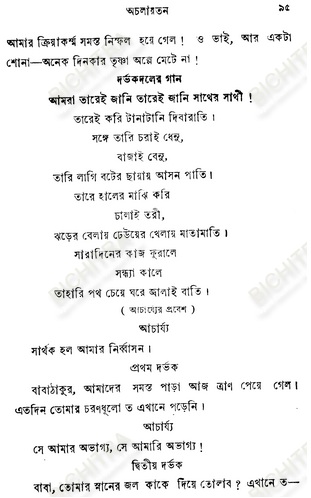 অচলায়তন ৯৫
আমার ক্রিয়াকর্ম্ম সমস্ত নিষ্ফল হয়ে গেল! ও ভাই, আর একটা
শোনা—অনেক দিনকার তৃষ্ণা অল্পে মেটে না!
দর্ভকদলের গান
আমরা তারেই জানি তারেই জানি সাথের সাথী!
তারেই করি টানাটানি দিবারাতি।
সঙ্গে তারি চরাই ধেনু,
বাজাই বেনু,
তারি লাগি বটের ছায়ায় আসন পাতি।
তারে হালের মাঝি করি
চালাই তরী,
ঝড়ের বেলায় ঢেউয়ের খেলায় মাতামাতি।
সারাদিনের কাজ ফুরালে
সন্ধ্যা কালে
তাহারি পথ চেয়ে ঘরে জ্বালাই বাতি।
( আচার্য্যের প্রবেশ )
আচার্য্য
সার্থক হল আমার নির্ব্বাসন।
প্রথম দর্ভক
বাবাঠাকুর, আমাদের সমস্ত পাড়া আজ ত্রাণ পেয়ে গেল।
এতদিন তোমার চরণধূলো ত এখানে পড়েনি।
আচার্য্য
সে আমার অভাগ্য, সে আমারি অভাগ্য!
দ্বিতীয় দর্ভক
বাবা, তোমার স্নানের জল কাকে দিয়ে তোলাব? এখানে ত—
BICHITRA
BICHITRA
BICHITRA
BICHITRA
BICHITRA